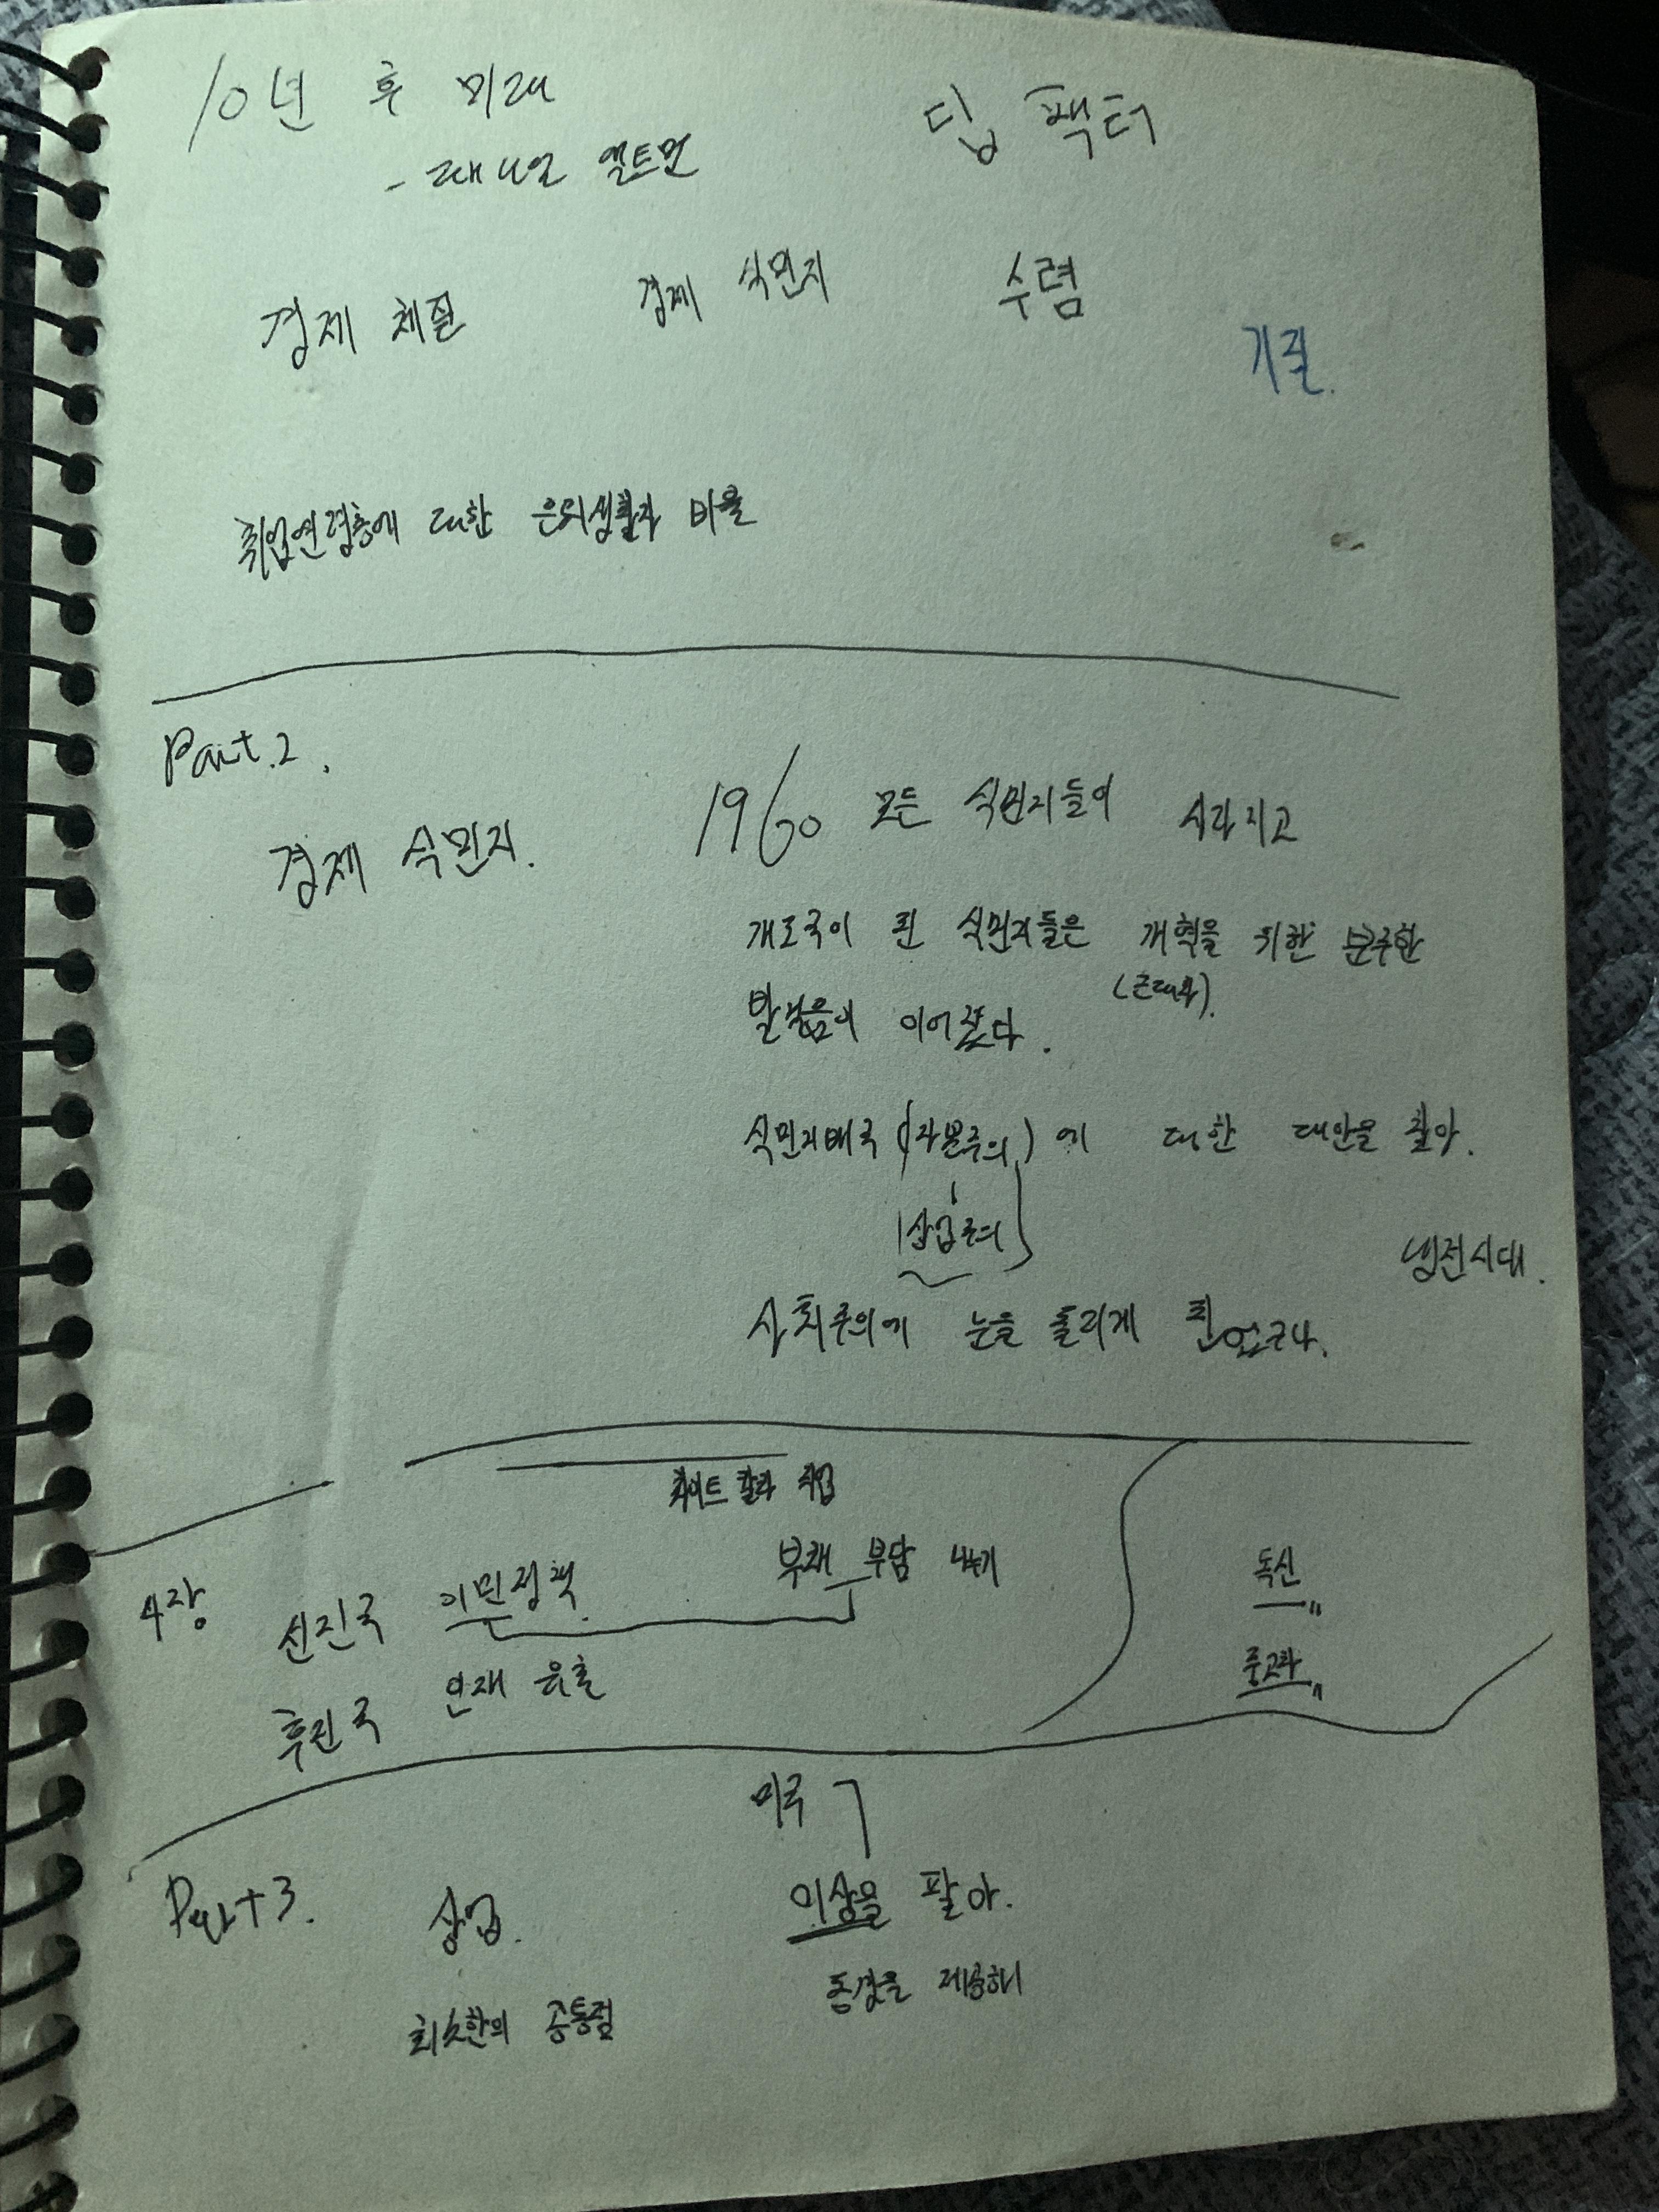 10년 후 미래
딥 팩터
- 대니얼 앨트먼
경제 체질
경제 식민지
수렴
기질.
취업연령층에 대한 은퇴생활자 비율
Part.2.
경제 식민지.
1960 모든 식민지들이 사라지고
개도국이 된 식민지들은 개혁을 위한 분주한
(근대화).
발걸음이 이어졌다.
식민지배국 (자본주의)에 대한 대안을 찾아.
상업주의
냉전시대.
사회주의에 눈을 돌리게 된
화이트 칼라 취업
4장
선진국 이민정책
부채 부담 나누기
후진국 인재 유출
독신
중고차
미국
Part 3.
상업.
이상을 팔아.
동경을 제공하니
최소한의 공통점